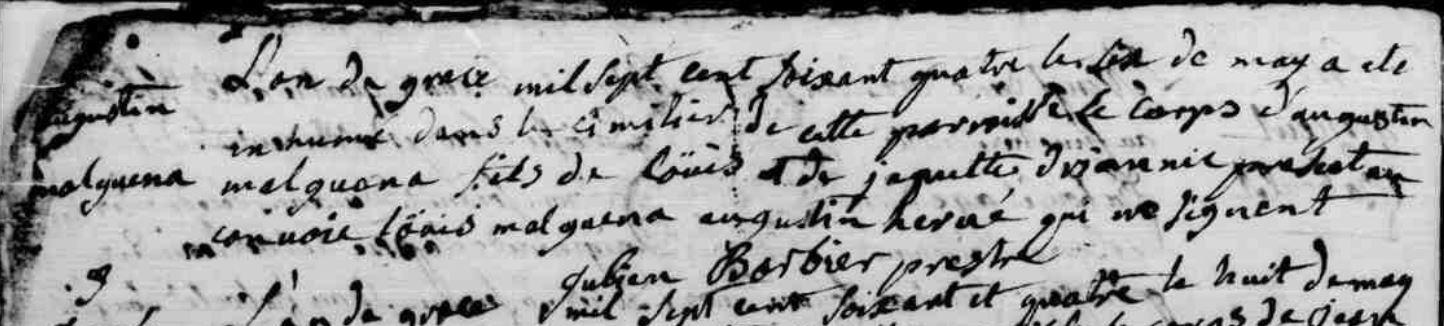 augustin
malguena
L'an de grace mil sept cent soixant quatre le six de may a ete
inhumé dans le cimetier de cette parroisse le corps d'augustin
malguena fils de löuis et de jaquette present au
convoie löuis malguena augustin hervé qui ne signent
Julien Barbier prestre
L'an de grace mil sept cent soixant et quatre le huit de may
corps de jean